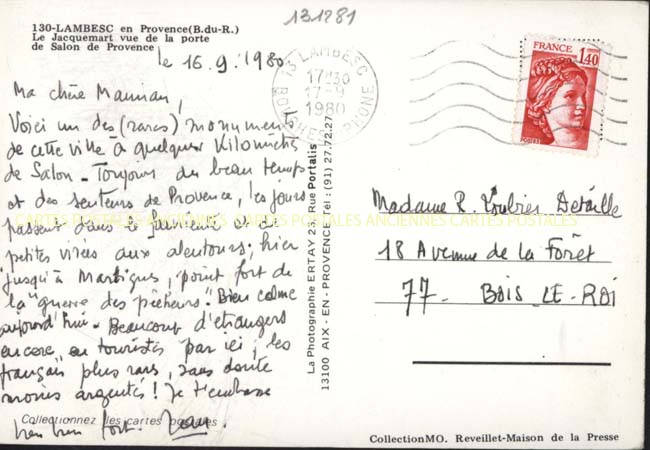 131281
130-LAMBESC en Provence(B.du-R.)
Le Jacquemart vue de la porte
de Salon de Provence
le 16.9.1980
Ma chère Maman,
Voici un des (rares) monuments
de cette ville à quelques Kilomètres
de Salon - Toujours du beau temps
et des senteurs de Provence, les jours
passent dans le et de
petites virées aux alentours; hier
jusqu'à Martigues, point fort de
la "guerre des pêcheurs". Bien calme
aujourd'hui - Beaucoup d'étrangers
encore, en touristes par ici, les
français plus rares, sans doute
moins argentés! Je t'embrasse
bien bien fort. Jean.
Collectionnez les cartes postales
La Photographie ERTAY 23, Rue Portalis
13100 AIX - EN - PROVENCE Tél : (91) 27.72.27
13 LAMBESC
17H30
17-9
1980
BOUCHES RHONE
FRANCE
1,40
POSTES
Madame R. Loubier Detaille
18 Avenue de la Forêt
77 - BOIS-LE-ROI
CARTES POSTALES ANCIENNES CARTES POSTALES ANCIENNES CARTES POSTALES
CollectionMO. Reveillet-Maison de la Presse